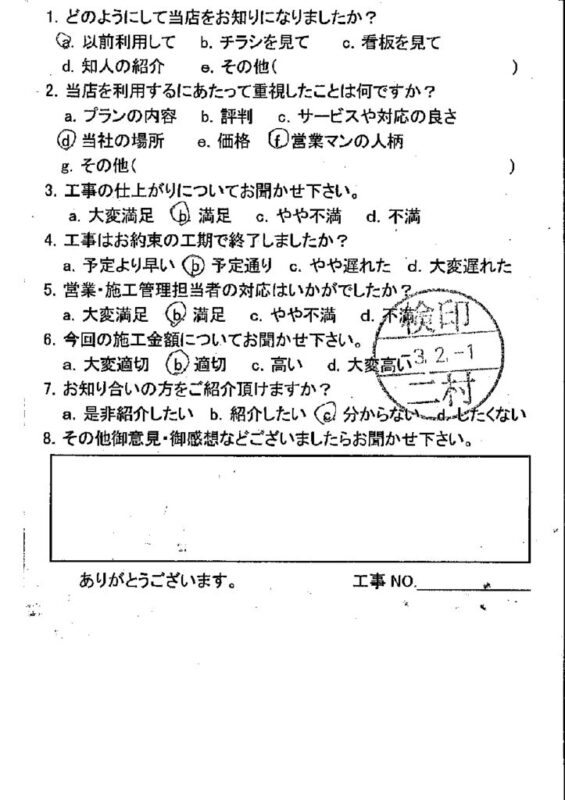 1. どのようにして当店をお知りになりましたか?
a. 以前利用して b. チラシを見て c. 看板を見て
d. 知人の紹介 e. その他( )
2. 当店を利用するにあたって重視したことは何ですか?
a. プランの内容 b. 評判 c. サービスや対応の良さ
d 当社の場所 e. 価格 f. 営業マンの人柄
g. その他( )
3. 工事の仕上がりについてお聞かせ下さい。
a. 大変満足 b. 満足 c. やや不満 d. 不満
4. 工事はお約束の工期で終了しましたか?
a. 予定より早い b 予定通り c. やや遅れた d. 大変遅れた
5. 営業・施工管理担当者の対応はいかがでしたか?
a. 大変満足 b. 満足 c. やや不満 d. 不満
6. 今回の施工金額についてお聞かせ下さい。
a. 大変適切 b. 適切 c. 高い d. 大変高い
検印
-3.2.-1
二村
7. お知り合いの方をご紹介頂けますか?
a. 是非紹介したい b. 紹介したい c. 分からない d. したくない
8. その他御意見・御感想などございましたらお聞かせ下さい。
ありがとうございます。 工事 NO.